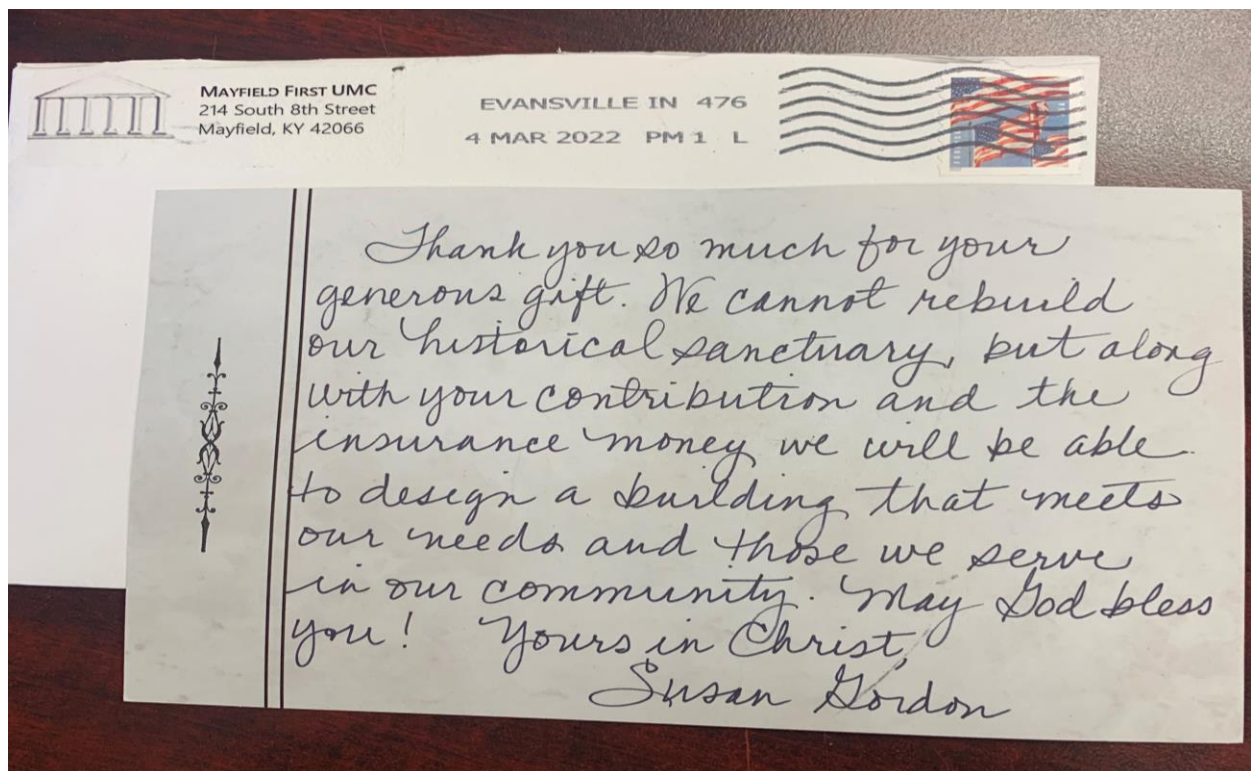 MAYFIELD FIRST UMC
214 South 8th Street
Mayfield, KY 42066
EVANSVILLE IN 476
4 MAR 2022 PM 1 L
Thank you so much for your
generous gift. We cannot rebuild
our historical sanctuary, but along
with your contribution and the
insurance money we will be able
to design a building that meets
our needs and those we serve
in our community. May God bless
you! Yours in Christ,
Susan Gordon